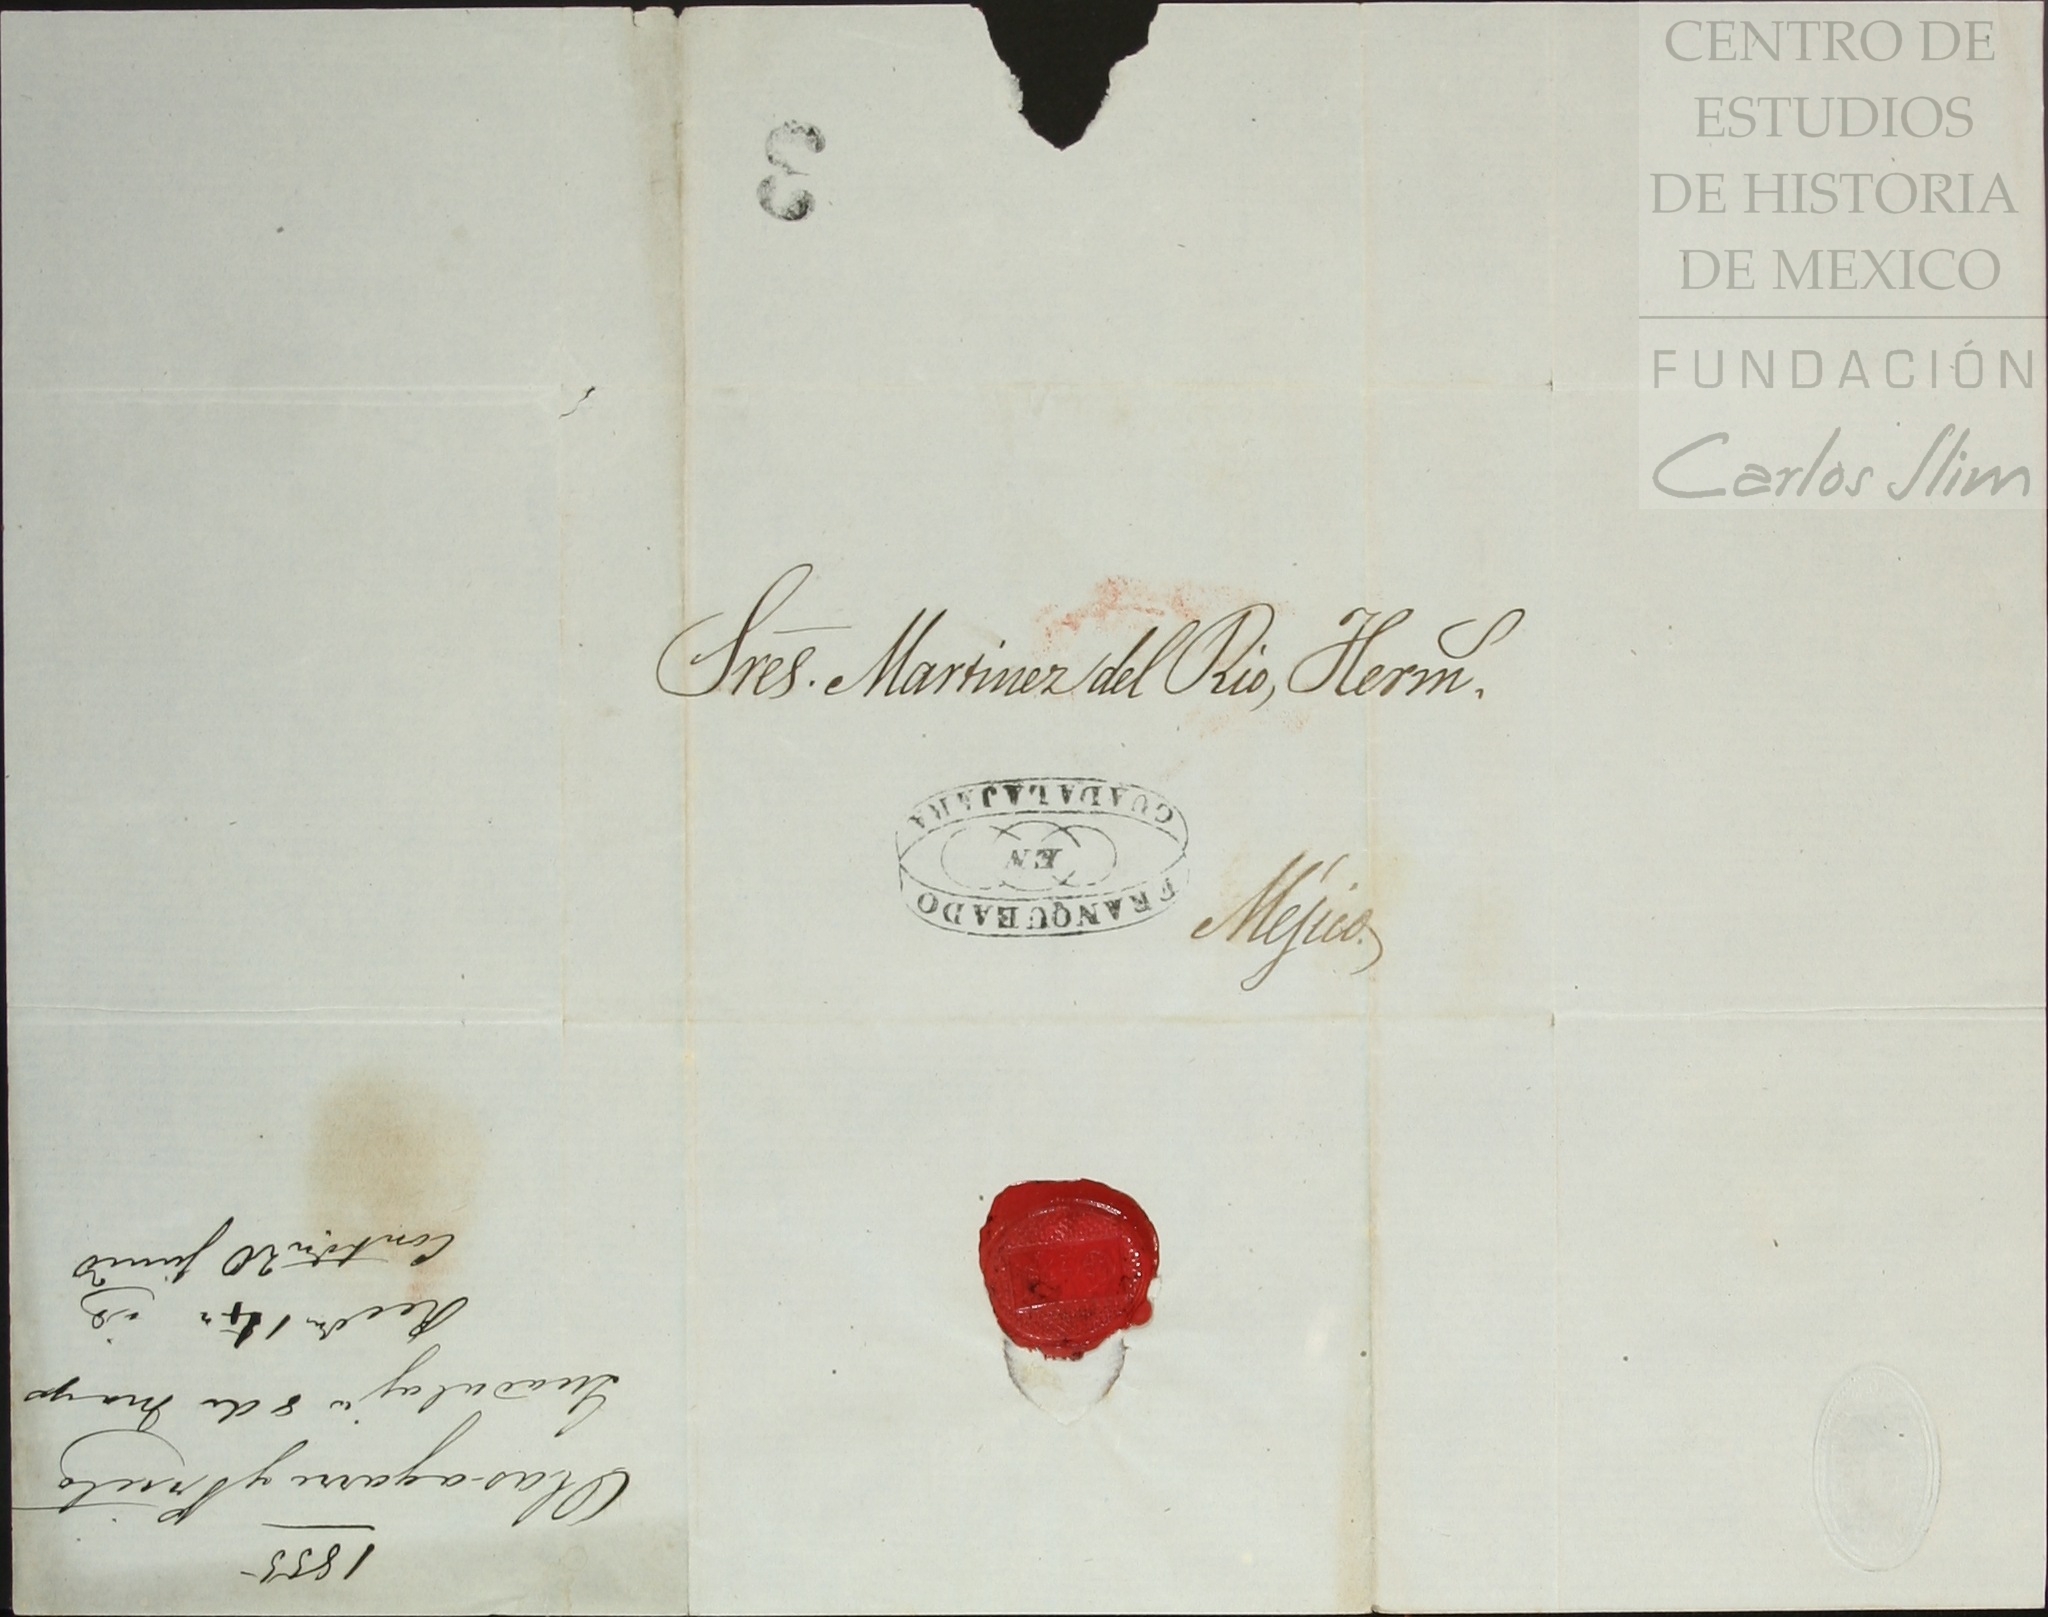 CENTRO DE
ESTUDIOS
DE HISTORIA
DE MEXICO
FUNDACIÓN
Carlos Slim
3
Sres. Martinez del Rio, Herms.
FRANQUEADO
EN
GUADALAJARA
Méjico.
1855
Olasagarre y Prieto
Guadalaja 8 de Mayo
14
Conton 20 junio